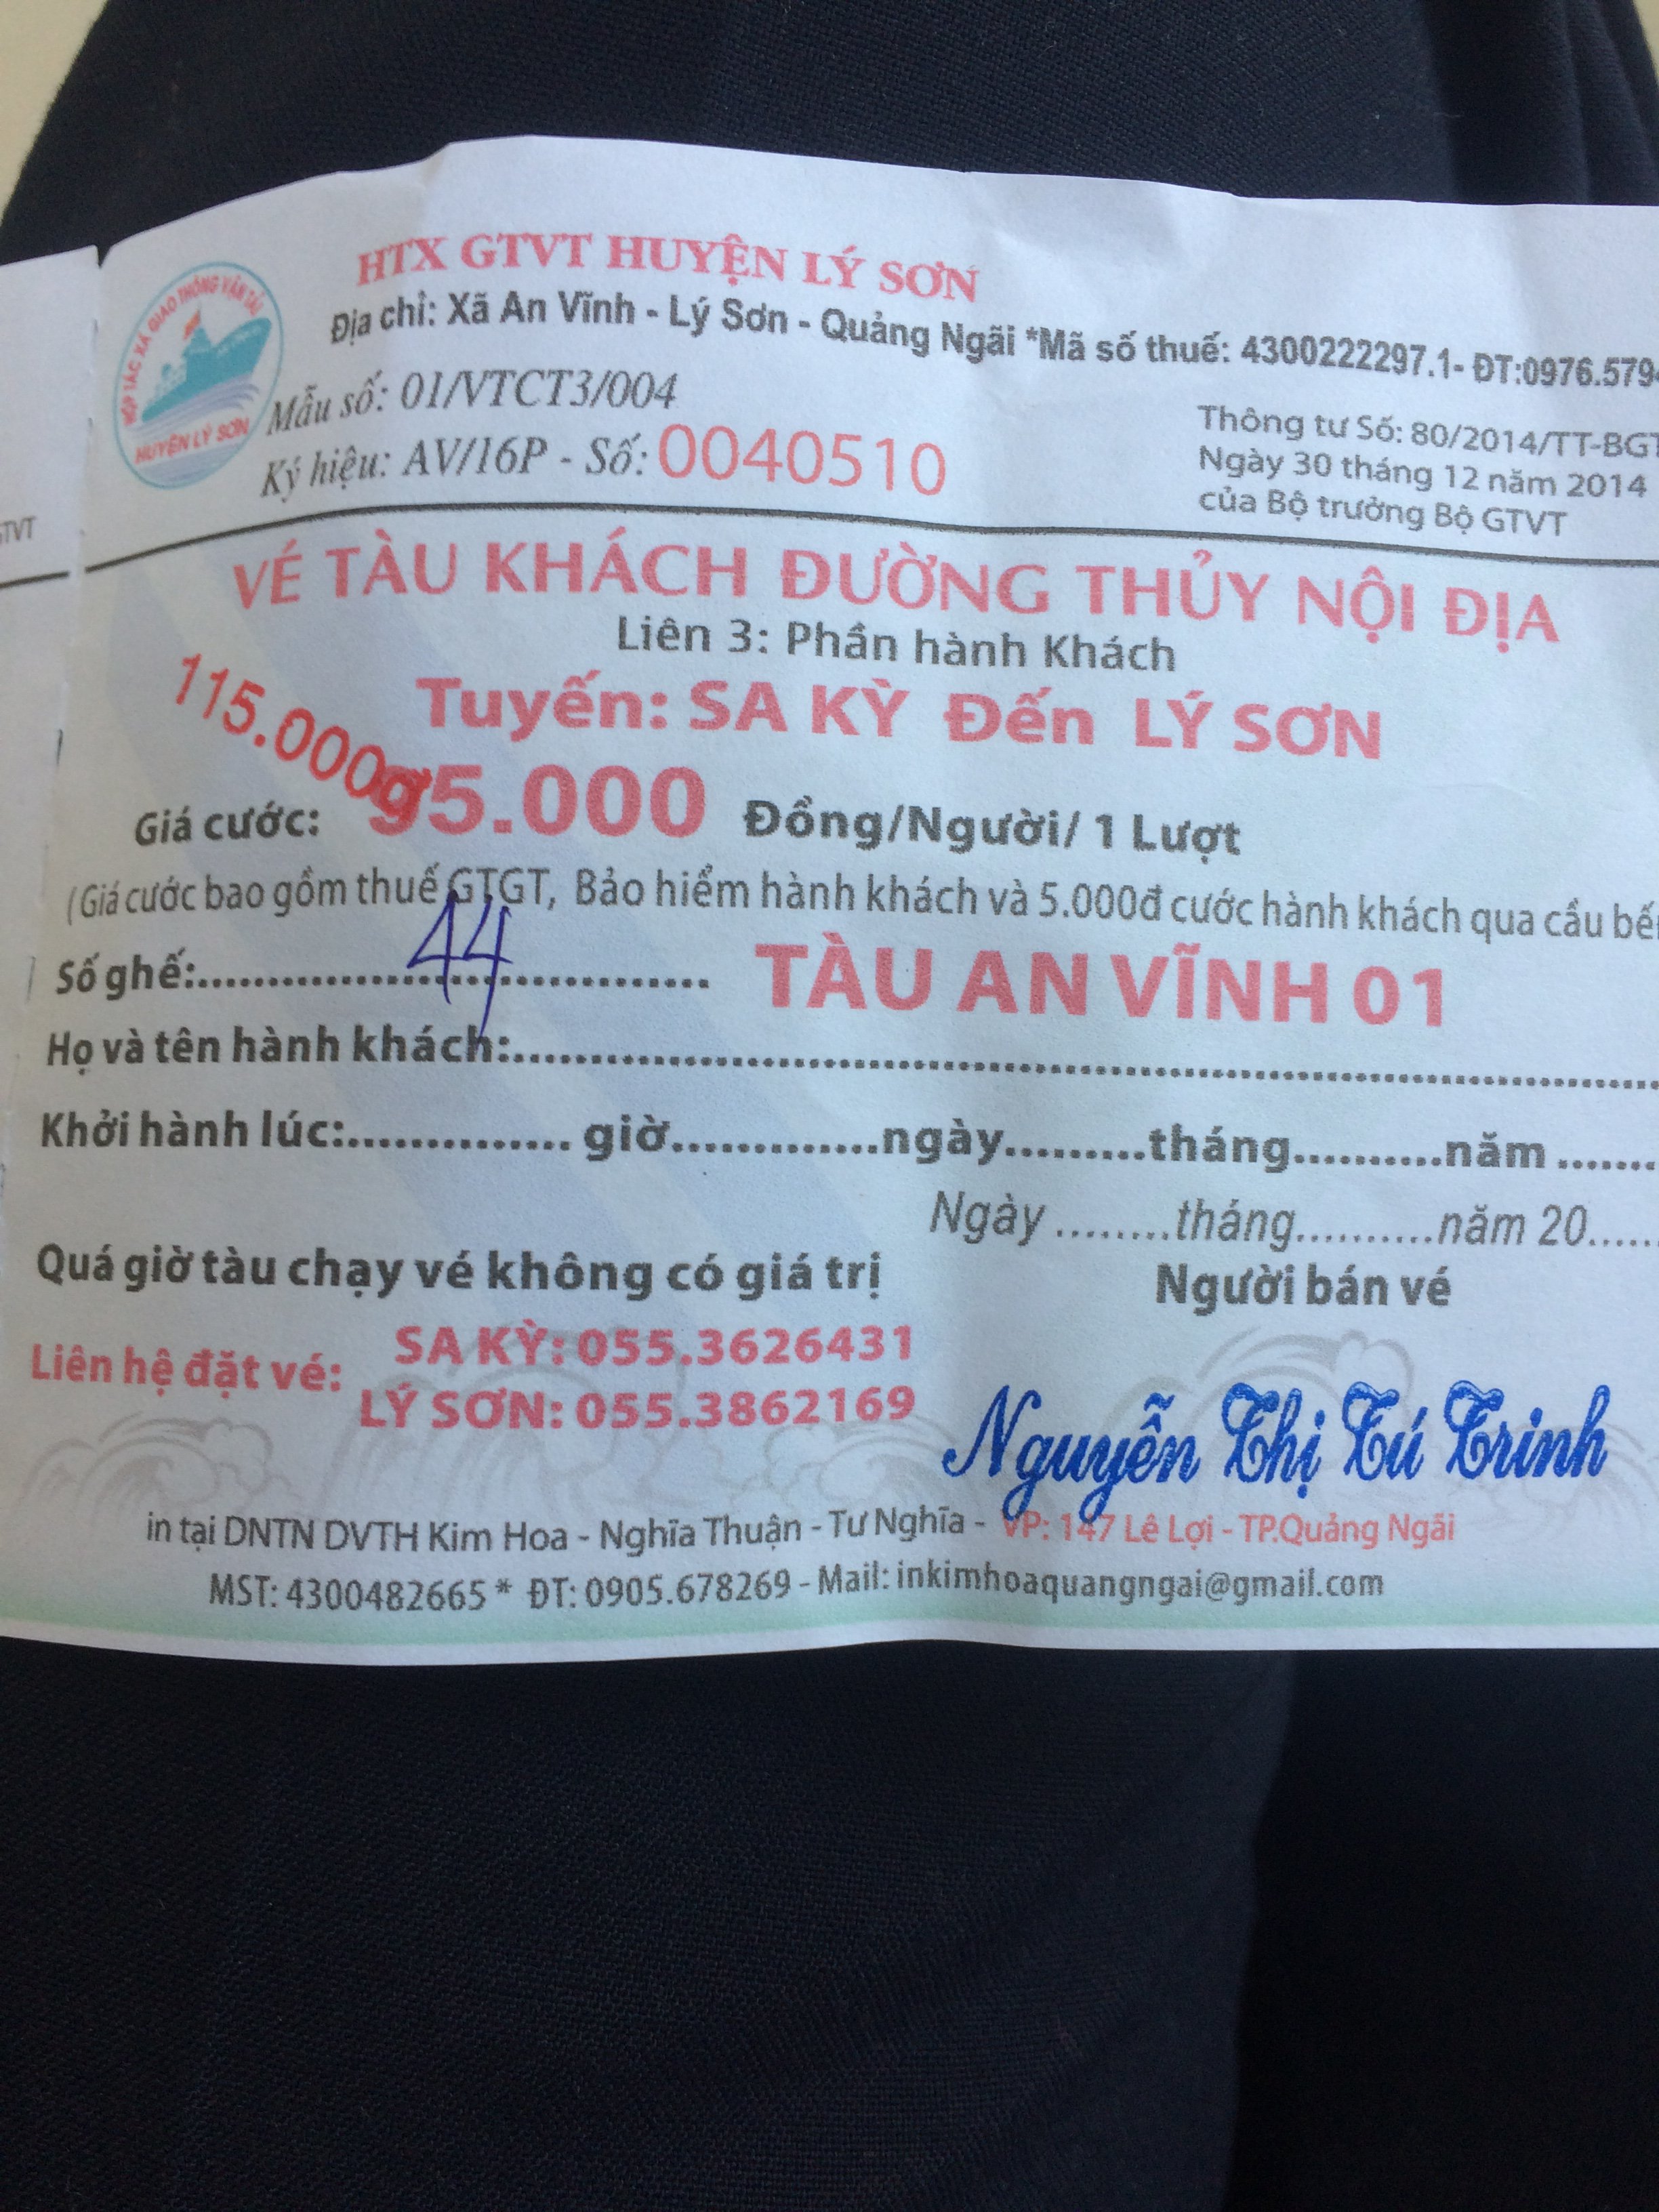 HTX GTVT HUYỆN LÝ SƠN
Địa chỉ: Xã An Vĩnh - Lý Sơn - Quảng Ngãi *Mã số thuế: 4300222297.1- ĐT:0976.579
HỢP TÁC XÃ GIAO THÔNG VẬN TẢI
HUYỆN LÝ SƠN
Mẫu số: 01/VTCT3/004
Ký hiệu: AV/16P - Số: 0040510
Thông tư Số: 80/2014/TT-BGT
Ngày 30 tháng 12 năm 2014
của Bộ trưởng Bộ GTVT
GTVT
VÉ TÀU KHÁCH ĐƯỜNG THỦY NỘI ĐỊA
Liên 3: Phần hành Khách
Tuyến: SA KỲ Đến LÝ SƠN
115.000đ
Giá cước: 95.000 Đồng/Người/ 1 Lượt
(Giá cước bao gồm thuế GTGT, Bảo hiểm hành khách và 5.000đ cước hành khách qua cầu bế
Số ghế:............44............ TÀU AN VĨNH 01
Họ và tên hành khách:............
Khởi hành lúc:............... giờ.............ngày.........tháng..........năm .......
Ngày ........tháng..........năm 20......
Quá giờ tàu chạy vé không có giá trị
Người bán vé
Liên hệ đặt vé: SA KỲ: 055.3626431
LÝ SƠN: 055.3862169
Nguyễn Thị Tú Trinh
in tại DNTN DVTH Kim Hoa - Nghĩa Thuận - Tư Nghĩa - VP: 147 Lê Lợi - TP.Quảng Ngãi
MST: 4300482665 * ĐT: 0905.678269 - Mail: inkimhoaquangngai@gmail.com